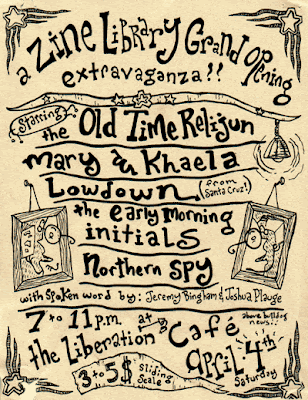 a Zine Library Grand Opening
extravaganza!!
Starring:
the Old Time Relijun
mary & Khaela
Lowdown (from Santa Cruz!)
the early Morning
initials
Northern Spy
with spoken word by: Jeremy Bingham & Joshua Plauge
7 to 11 p.m. at
the Liberation Café
above bulldog news!!
3 to 5$ Sliding Scale
April 4th
Saturday